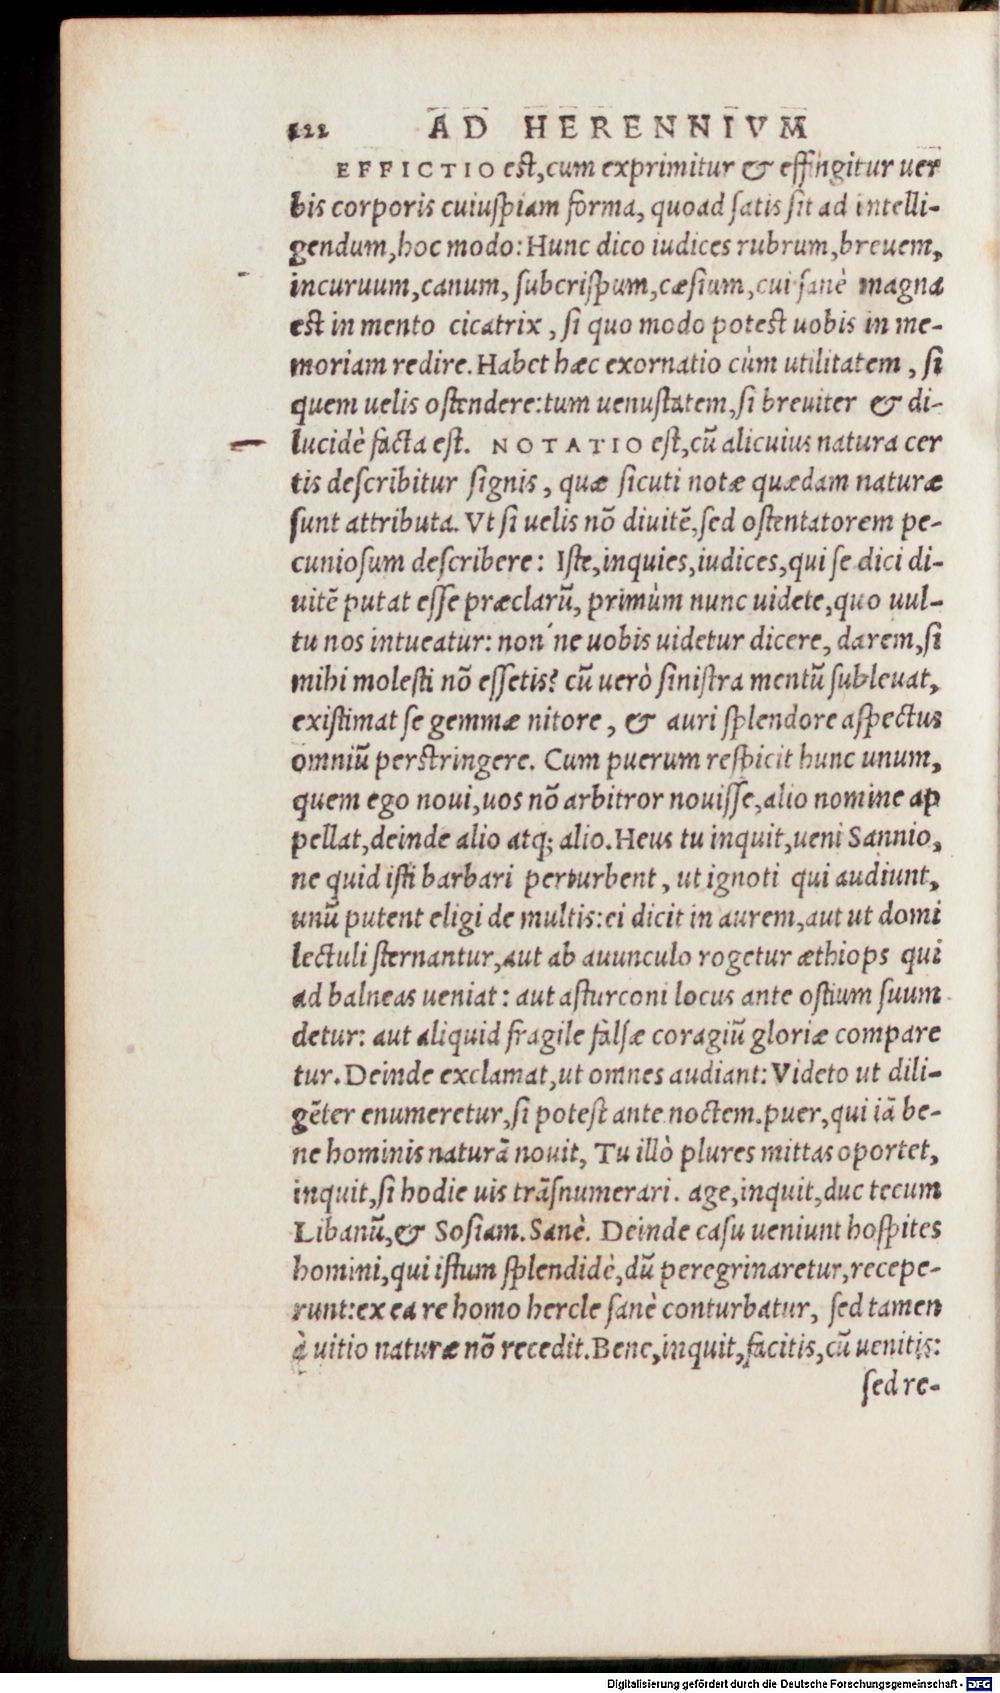 122 AD HERENNIVM
EFFICTIO est, cum exprimitur & effingitur uer
bis corporis cuiuspiam forma, quoad satis sit ad intelli-
gendum, hoc modo: Hunc dico iudices rubrum, breuem,
incuruum, canum, subcrispum, cæsium, cui sanè magna
est in mento cicatrix, si quo modo potest uobis in me-
moriam redire. Habet hæc exornatio cùm utilitatem, si
quem uelis ostendere: tum uenustatem, si breuiter & di-
lucidè facta est. NOTATIO est, cũ alicuius natura cer
tis describitur signis, quæ sicuti notæ quædam naturæ
sunt attributa. Vt si uelis nõ diuitẽ, sed ostentatorem pe-
cuniosum describere: Iste, inquies, iudices, qui se dici di-
uitẽ putat esse præclarũ, primùm nunc uidete, quo uul-
tu nos intueatur: non´ne uobis uidetur dicere, darem, si
mihi molesti nõ essetis? cũ uerò sinistra mentũ subleuat,
existimat se gemmæ nitore, & auri splendore aspectus
omniũ perstringere. Cum puerum respicit hunc unum,
quem ego noui, uos nõ arbitror nouisse, alio nomine ap
pellat, deinde alio atq; alio. Heus tu inquit, ueni Sannio,
ne quid isti barbari perturbent, ut ignoti qui audiunt,
unũ putent eligi de multis: ei dicit in aurem, aut ut domi
lectuli sternantur, aut ab auunculo rogetur æthiops qui
ad balneas ueniat: aut asturconi locus ante ostium suum
detur: aut aliquid fragile falsæ coragiũ gloriæ compare
tur. Deinde exclamat, ut omnes audiant: Videto ut dili-
gẽter enumeretur, si potest ante noctem. puer, qui iã be-
ne hominis naturã nouit, Tu illò plures mittas oportet,
inquit, si hodie uis trãsnumerari. age, inquit, duc tecum
Libanũ, & Sosiam. Sanè. Deinde casu ueniunt hospites
homini, qui istum splendidè, dũ peregrinaretur, recepe-
runt: ex ea re homo hercle sanè conturbatur, sed tamen
à uitio naturæ nõ recedit. Bene, inquit, facitis, cũ uenitis:
sed re-
Digitalisierung gefördert durch die Deutsche Forschungsgemeinschaft - DFG